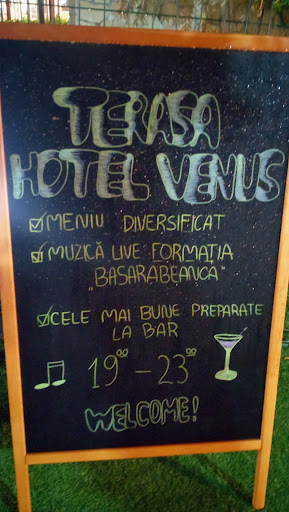 TERASA
HOTEL VENUS
MENIU DIVERSIFICAT
MUZICĂ LIVE FORMAȚIA
„BASARABEANCA”
CELE MAI BUNE PREPARATE
LA BAR
19⁰⁰ – 23⁰⁰
WELCOME!